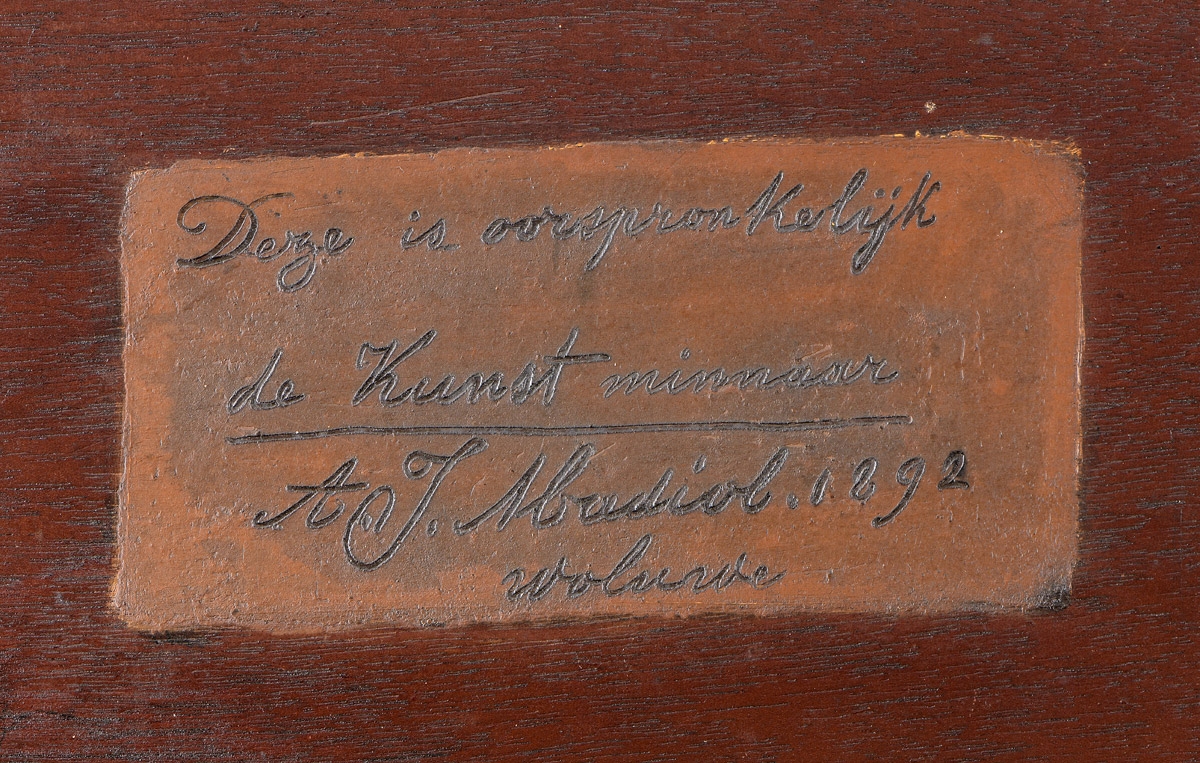 Deze is oorspronkelijk
de Kunst minnaar
A J. Madiol. 1892
woluwe